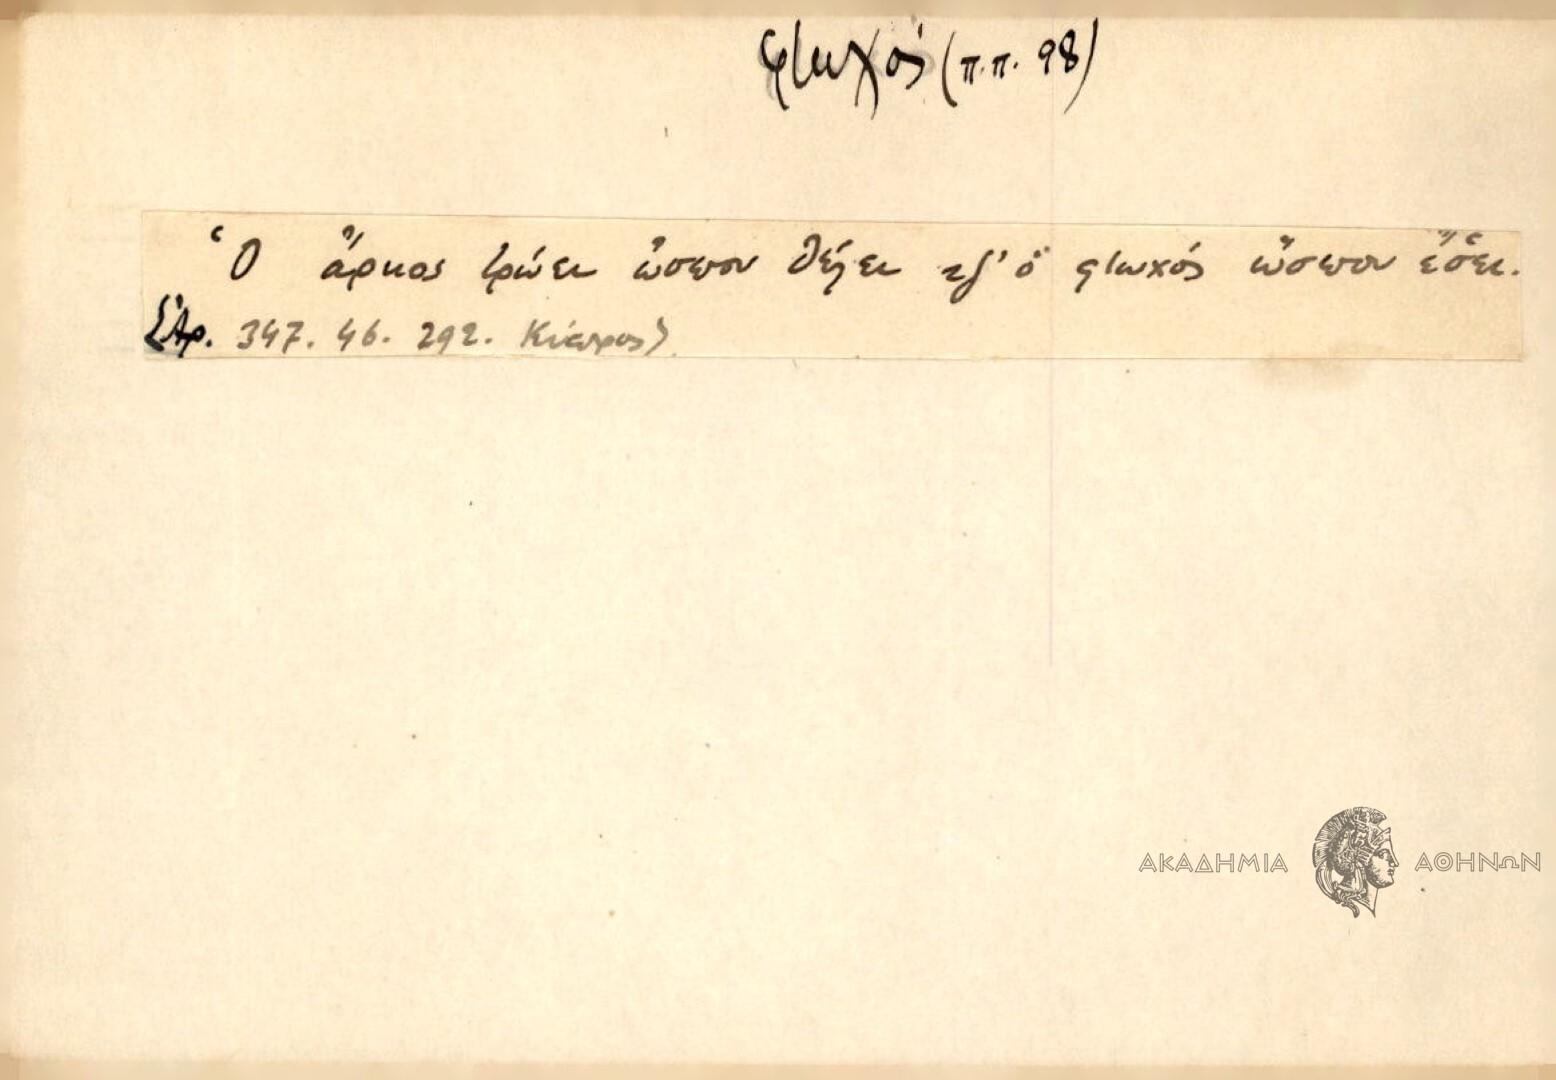 φτωχός (π.π. 98)
Ὁ ἄρκος τρώει ὥσπου θέλει τζ' ὁ φτωχός ὥσπου ἔσει.
Ἀρ. 347. 46. 292. Κύπρος)
ΑΚΑΔΗΜΙΑ ΑΘΗΝΩΝ